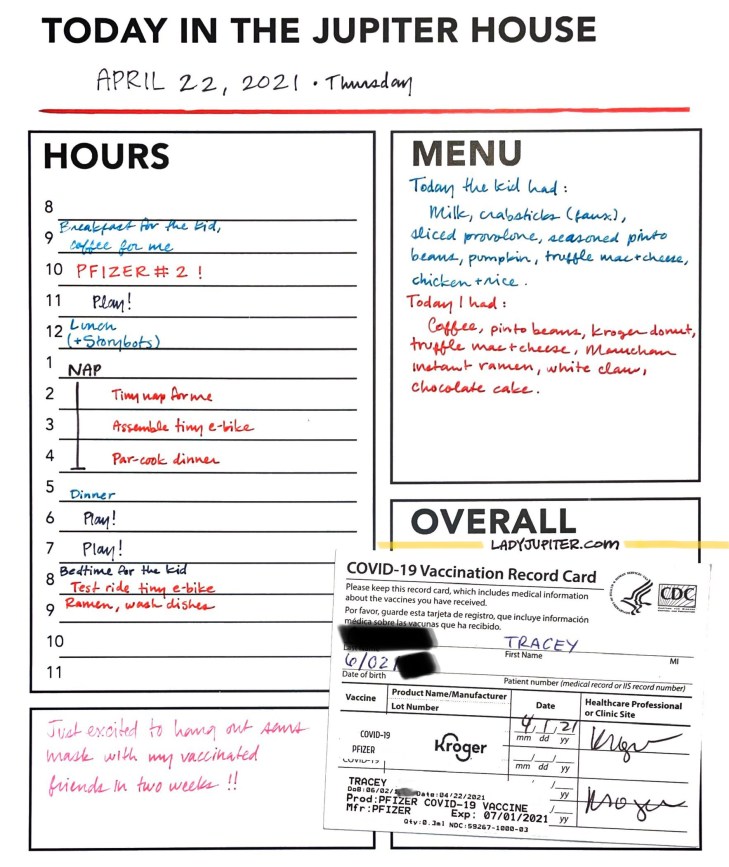 TODAY IN THE JUPITER HOUSE
APRIL 22, 2021 • Thursday
HOURS
8
Breakfast for the kid,
9 coffee for me
10 PFIZER # 2 !
11 Play!
12 Lunch
(+Storybots)
1 NAP
2 Tiny nap for me
3 Assemble tiny e-bike
4 Par-cook dinner
5 Dinner
6 Play!
7 Play!
Bedtime for the kid
8 Test ride tiny e-bike
9 Ramen, wash dishes
10
11
Just excited to hang out sans
mask with my vaccinated
friends in two weeks !!
MENU
Today the kid had:
Milk, crabsticks (faux),
sliced provolone, seasoned pinto
beans, pumpkin, truffle mac+cheese,
chicken+rice.
Today I had:
Coffee, pinto beans, Kroger donut,
truffle mac+cheese, Maruchan
instant ramen, white claw,
chocolate cake.
OVERALL
LADYJUPITER.COM
COVID-19 Vaccination Record Card
Please keep this record card, which includes medical information
about the vaccines you have received.
Por favor, guarde esta tarjeta de registro, que incluye información
médica sobre las vacunas que ha recibido.
CDC
TRACEY
First Name
MI
6/02/
Date of birth
Patient number (medical record or IIS record number)
Vaccine
Product Name/Manufacturer
Lot Number
Date
Healthcare Professional
or Clinic Site
COVID-19
PFIZER
Kroger
4/1/21
mm dd yy
Kroger
COVID-19
mm dd yy
TRACEY
DoB:06/02/ Date:04/22/2021
Prod:PFIZER COVID-19 VACCINE
Mfr:PFIZER Exp: 07/01/2021
Qty:0.3ml NDC:59267-1000-03
yy
yy
Kroger